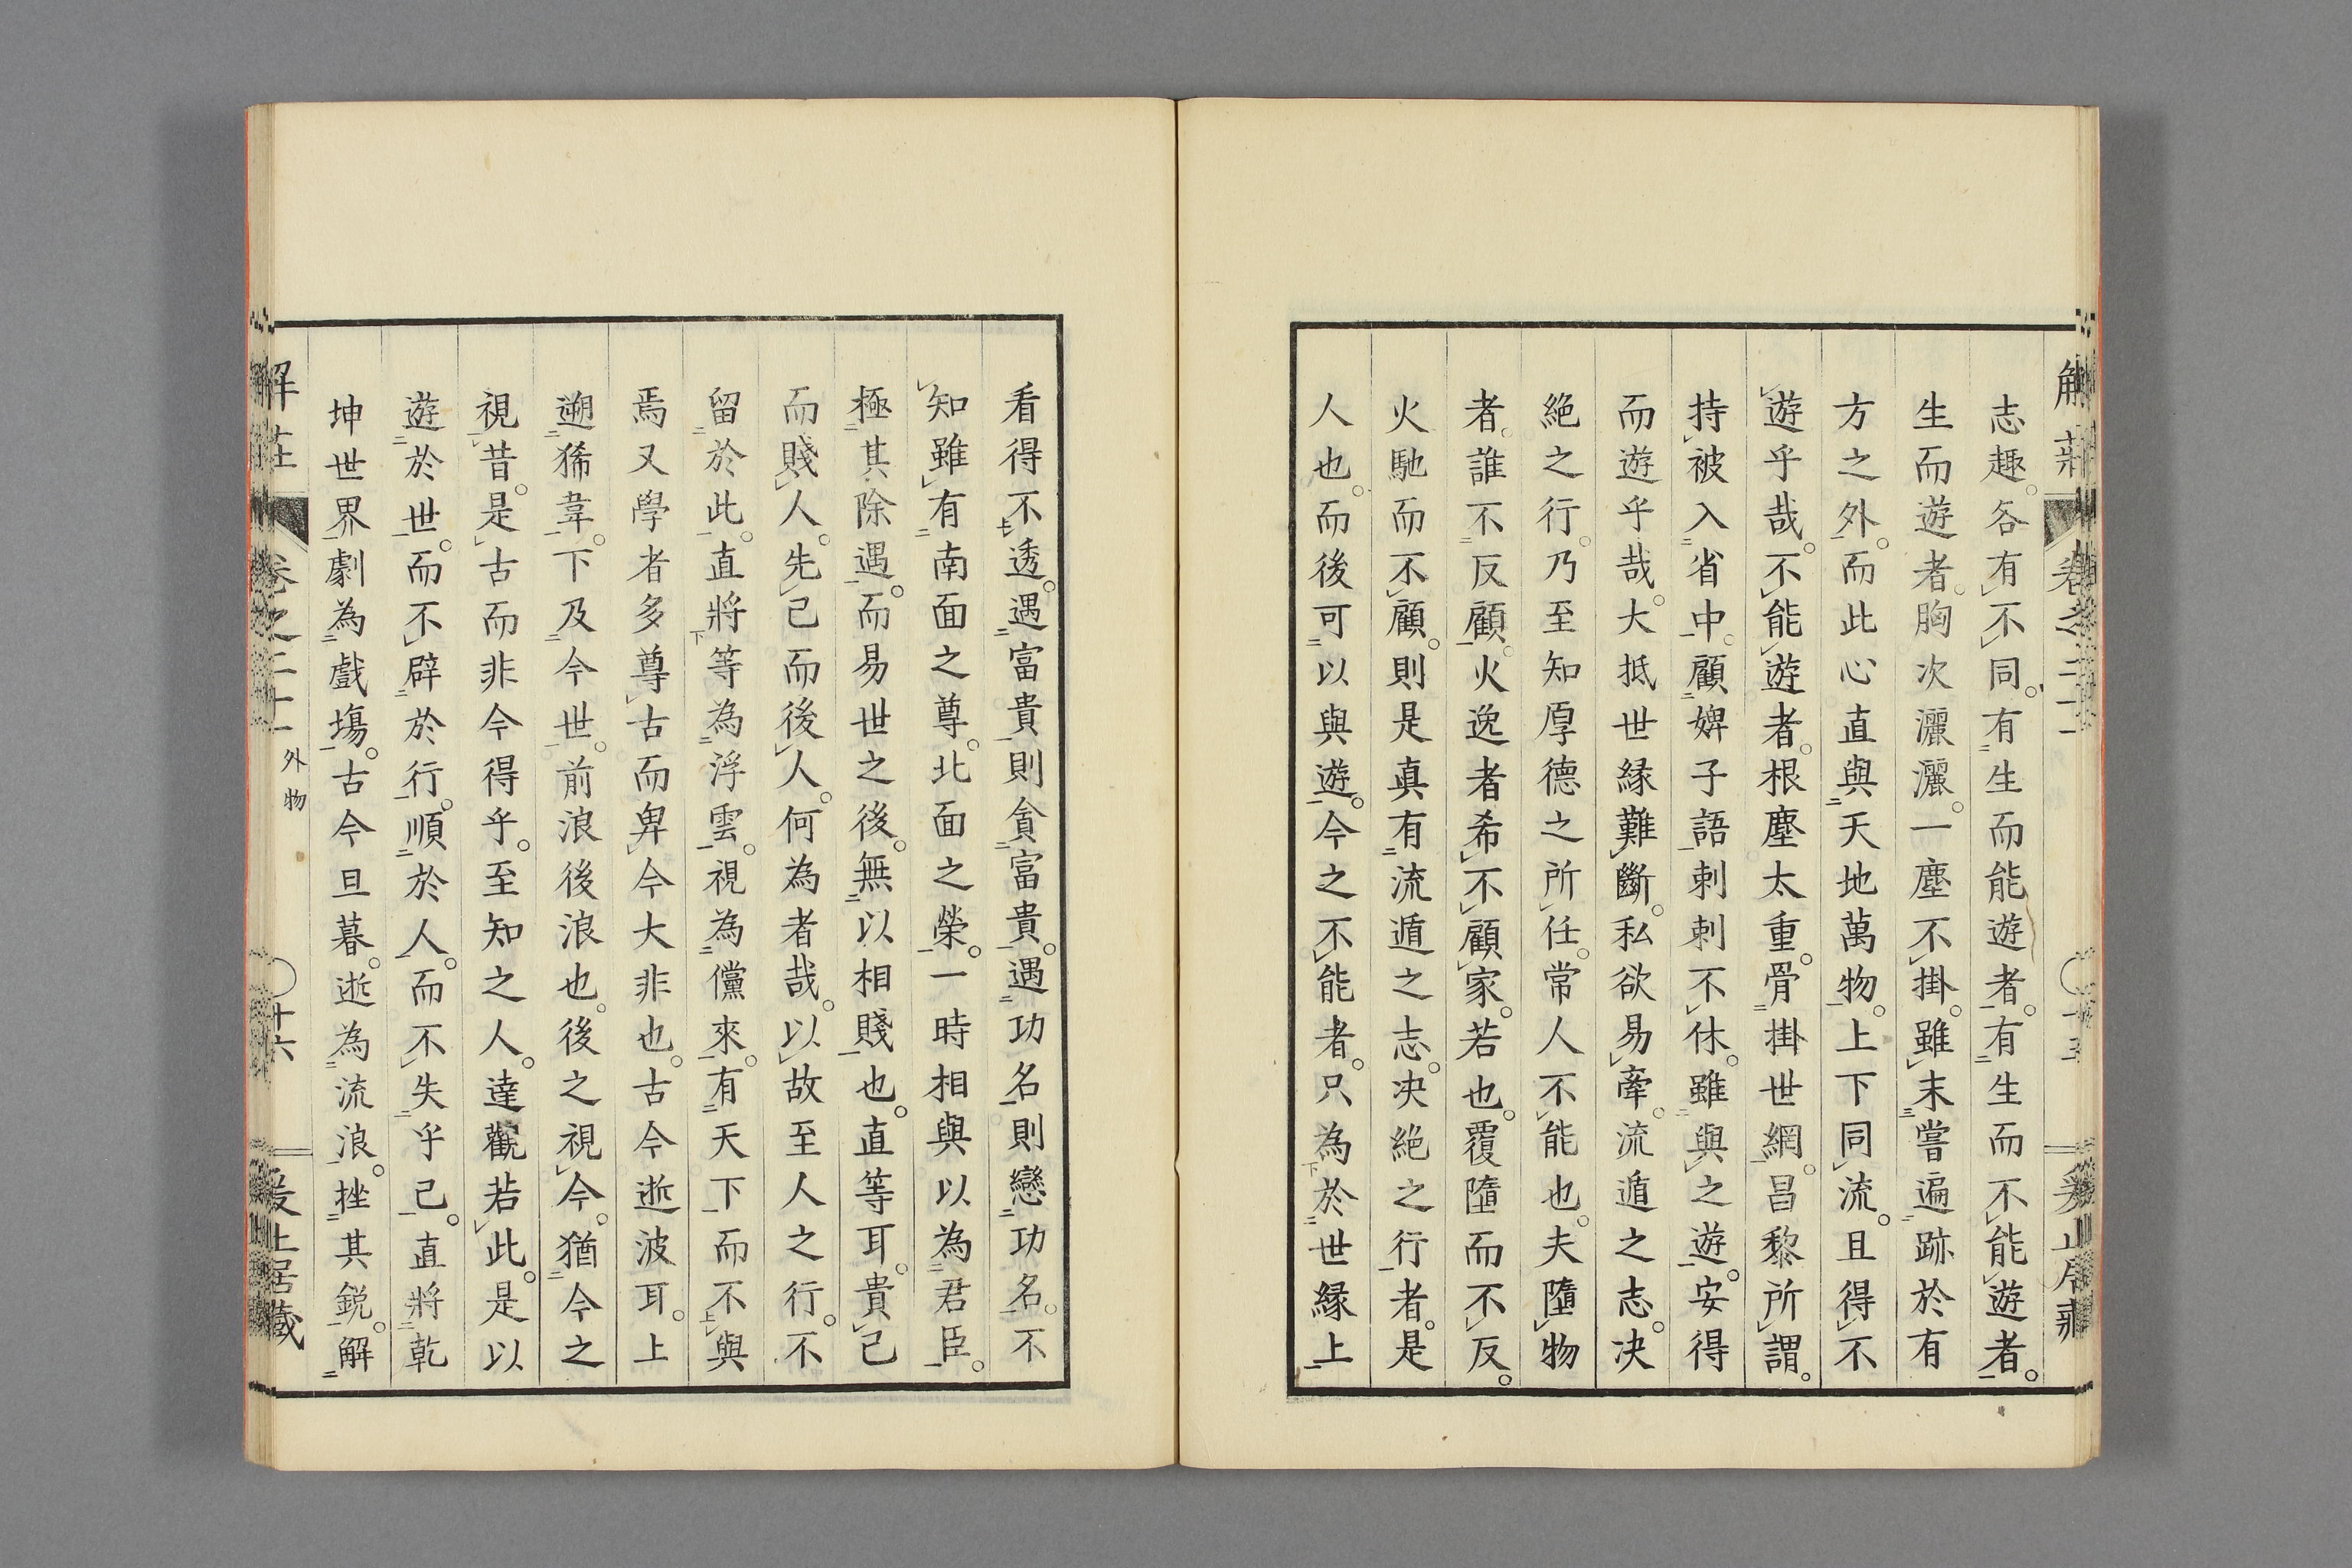 志趣。各有不同。有生而能遊者。有生而不能遊者。
生而遊者。胸次灑灑。一塵不掛。雖未嘗遍跡於有
方之外。而此心直與天地萬物。上下同流。且得不
遊乎哉。不能遊者。根塵太重。骨掛世網。昌黎所謂。
持被入省中。顧婢子語剌剌不休。雖與之遊。安得
而遊乎哉。大抵世緣難斷。私欲易牽。流遁之志。决
絕之行。乃至知厚德之所任。常人不能也。夫墮物
者。誰不反顧。火逸者希不顧家。若也。覆墮而不反。
火馳而不顧。則是真有流遁之志。决絕之行者。是
人也。而後可以與遊。今之不能者。只為於世緣上
看得不透。遇富貴則貪富貴。遇功名則戀功名。不
知雖有南面之尊。北面之榮。一時相與以為君臣。
極其除遇。而易世之後。無以相賤也。直等耳。貴己
而賤人。先己而後人。何為者哉。以故至人之行。不
留於此。直將等為浮雲。視為儻來。有天下而不與
焉又學者多尊古而卑今大非也。古今逝波耳。上
遡狶韋。下及今世。前浪後浪也。後之視今。猶今之
視昔。是古而非今得乎。至知之人。達觀若此。是以
遊於世。而不辟於行。順於人。而不失乎己。直將乾
坤世界劇為戲塲。古今旦暮。逝為流浪。挫其鋭。解
解莊
卷之二十一
外物
十六